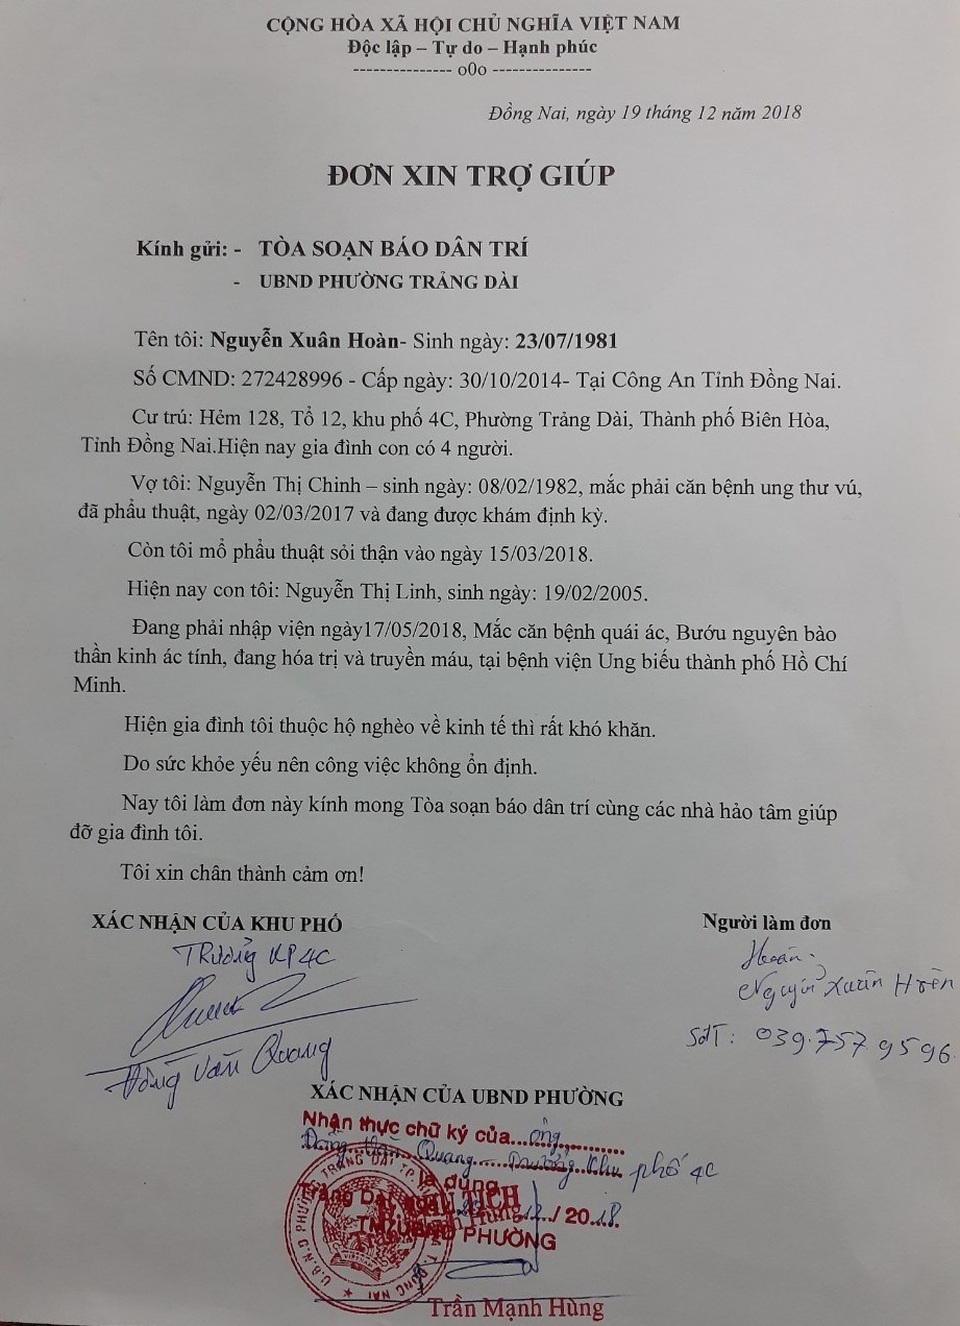 CỘNG HÒA XÃ HỘI CHỦ NGHĨA VIỆT NAM
Độc lập – Tự do – Hạnh phúc
--------------- o0o ---------------
Đồng Nai, ngày 19 tháng 12 năm 2018
ĐƠN XIN TRỢ GIÚP
Kính gửi: - TÒA SOẠN BÁO DÂN TRÍ
- UBND PHƯỜNG TRẢNG DÀI
Tên tôi: Nguyễn Xuân Hoàn- Sinh ngày: 23/07/1981
Số CMND: 272428996 - Cấp ngày: 30/10/2014- Tại Công An Tỉnh Đồng Nai.
Cư trú: Hẻm 128, Tổ 12, khu phố 4C, Phường Trảng Dài, Thành phố Biên Hòa,
Tỉnh Đồng Nai.Hiện nay gia đình con có 4 người.
Vợ tôi: Nguyễn Thị Chinh – sinh ngày: 08/02/1982, mắc phải căn bệnh ung thư vú,
đã phẩu thuật, ngày 02/03/2017 và đang được khám định kỳ.
Còn tôi mổ phẩu thuật sỏi thận vào ngày 15/03/2018.
Hiện nay con tôi: Nguyễn Thị Linh, sinh ngày: 19/02/2005.
Đang phải nhập viện ngày17/05/2018, Mắc căn bệnh quái ác, Bướu nguyên bào
thần kinh ác tính, đang hóa trị và truyền máu, tại bệnh viện Ung biếu thành phố Hồ Chí
Minh.
Hiện gia đình tôi thuộc hộ nghèo về kinh tế thì rất khó khăn.
Do sức khỏe yếu nên công việc không ổn định.
Nay tôi làm đơn này kính mong Tòa soạn báo dân trí cùng các nhà hảo tâm giúp
đỡ gia đình tôi.
Tôi xin chân thành cảm ơn!
XÁC NHẬN CỦA KHU PHÓ Người làm đơn
Trưởng KP4C Hoàn
Nguyễn Xuân Hoàn
SđT: 039.757 9596
Đồng Văn Quang
XÁC NHẬN CỦA UBND PHƯỜNG
Nhận thực chữ ký của...ông...........
Đồng Văn Quang.....Trưởng khu phố 4C
là đúng
Trảng Dài 12../ 20.18.
PHƯỜNG
U.B.N.D PHƯỜNG TRẢNG DÀI TP.
T. ĐỒNG NAI
Trần Mạnh Hùng